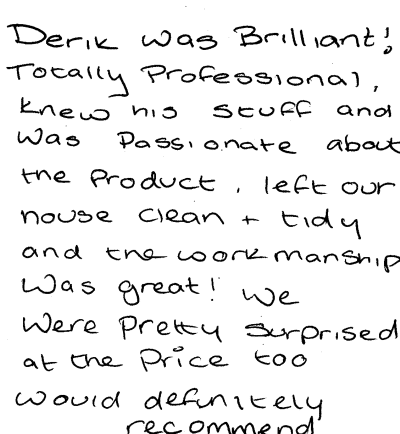 Derik was Brilliant!
Totally Professional,
knew his stuff and
was passionate about
the product, left our
house clean + tidy
and the workmanship
was great! We
were pretty surprised
at the price too
would definitely
recommend